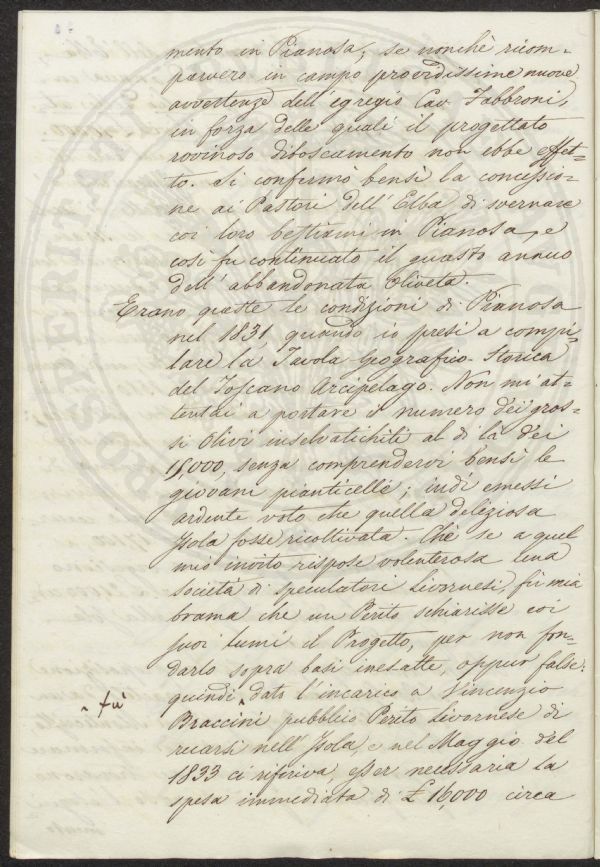 mento in Pianosa; se nonchè ricom-
parvero in campo providissime nuove
avvertenze dell'egregio Cav. Fabbroni,
in forza delle quali il progettato
rovinoso diboscamento non ebbe effet-
to. Si confermò bensì la concessio-
ne ai Pastori dell'Elba di svernare
coi loro bestiami in Pianosa, e
così fu continuato il guasto annuo
dell'abbandonata Oliveta.
Erano queste le condizioni di Pianosa
nel 1831, quando io presi a compi-
lare la Tavola Geografico-Storica
del Toscano Arcipelago. Non mi at-
tentai a portare il numero dei gros-
si Olivi inselvatichiti al di là dei
15,000, senza comprendervi bensì le
giovani pianticelle; indi emessi
ardente voto che quella deliziosa
Isola fosse ricoltivata. Che se a quel
mio invito rispose volenterosa una
società di speculatori Livornesi, fù mia
brama che un Perito schiarisse coi
suoi lumi il Progetto, per non fon-
darlo sopra basi inesatte, oppur false:
quindi dato l'incarico a Vincenzio
^ fù
Braccini pubblico Perito Livornese di
recarsi nell'Isola, e nel Maggio del
1833 ci riferiva, esser necessaria la
spesa immediata di £ 16,000 circa